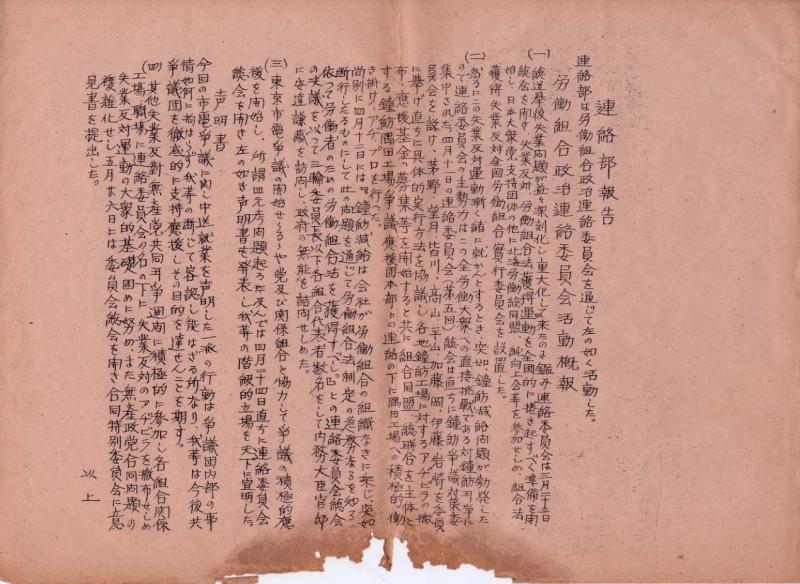 連絡部報告
労働組合政治連絡委員会活動概報
連絡部は労働組合政治連絡委員会を通じて左の如く活動した。
(一) 総選挙後失業問題が益々深刻化し重大化して来たのに鑑み連絡委員会は三月二十三日
総会を開き、失業反対、労働組合法獲得運動を全国的に捲き起すべく準備を開
始し、日本大衆党支持団体の他に北海労働総同盟、純向上会等を参加せしめ、組合法
獲得失業反対全国労働組合実行委員会を設置した。
(二) 然るにこの失業反対運動漸く緒に就かんとするとき、突如、鐘紡減給問題が勃発した
ので連絡委員会の主勢力はこの全労働大衆への直接挑戦である対鐘紡争議に
集中された。四月十一日の連絡委員会(第五回)総会は直ちに鐘紡争議対策委
員会を設け、茅野、望月、皆川、高山、平山、加藤、岡、伊藤、岩崎を委員
に挙げ直ちに具体的実行方法を協議し各地鐘紡工場に対するアヂビラの撒
布、応援基金の募集等を開始すると共に組合同盟、総聯合を主体と
する鐘紡隅田工場争議応援団本部との連絡の下に隅田工場への積極的働
き掛け、アヂ、プロを行った。
尚別に四月十二日には『鐘紡減給は会社が労働組合の組織なきに乗じ突如
断行したるものにして此の問題を通じて労働組合法制定の急務なるを知る
依って労働者のための労働組合法を獲得すべし』との連絡委員会総会
の決議を以って三輪委員長以下各組合代表者数名をして内務大臣官邸
に安達謙蔵を訪問し、政府の無能を詰問せしめた。
(三) 東京市電争議の開始せらるゝや党及び関係組合と協力して争議の積極的応
援を開始し、所謂四元老問題起るに及んでは四月二十四日直ちに連絡委員会
総会を開き左の如き声明書を発表し我等の階級的立場を天下に宣明した。
声明書
今回の市電争議に関し中途就業を声明した一派の行動は争議団内部の事
情如何に拘はらず我等の断じて容認し能はざる所なり、我等は今後共
争議団を徹底的に支持応援しその目的を達せんことを期す。
(四) 其他失業反対無産党共同斗争週間に積極的に参加し各組合関係
工場、職場に連絡委員会の名の下に失業反対のアヂビラを撒布せしめ
失業反対運動の大衆的基礎固めに努め、また無産政党合同問題の
複雑化せし五月廿六日には委員会総会を開き合同特別委員会に意
見書を提出した。
以上